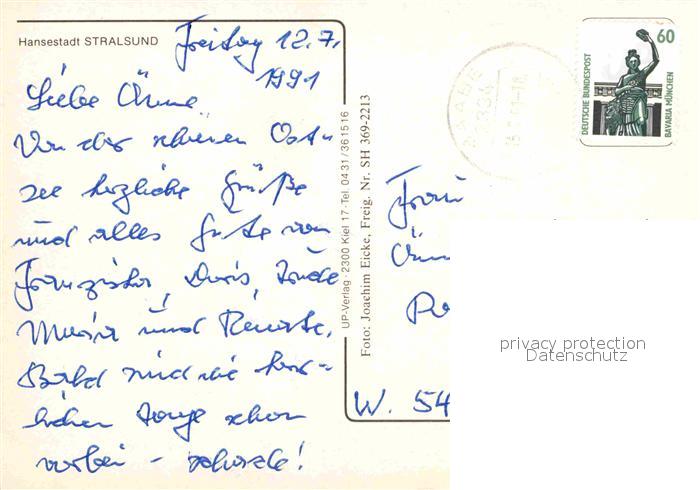 Hansestadt STRALSUND
Freitag 12.7.
1991
Liebe Änne.
Von der schönen Ost-
see herzliche Grüße
und alles Gute von
Franziska, Doris, Trude
Maria und Renate.
Bald sind die herr-
lichen Tage schon
vorbei - schade!
UP-Verlag · 2300 Kiel 17 · Tel. 04 31/36 15 16
Foto: Joachim Eicke, Freig. Nr. SH 369-2213
60
DEUTSCHE BUNDESPOST
BAVARIA MÜNCHEN
Frau
Änn
W. 54
privacy protection
Datenschutz